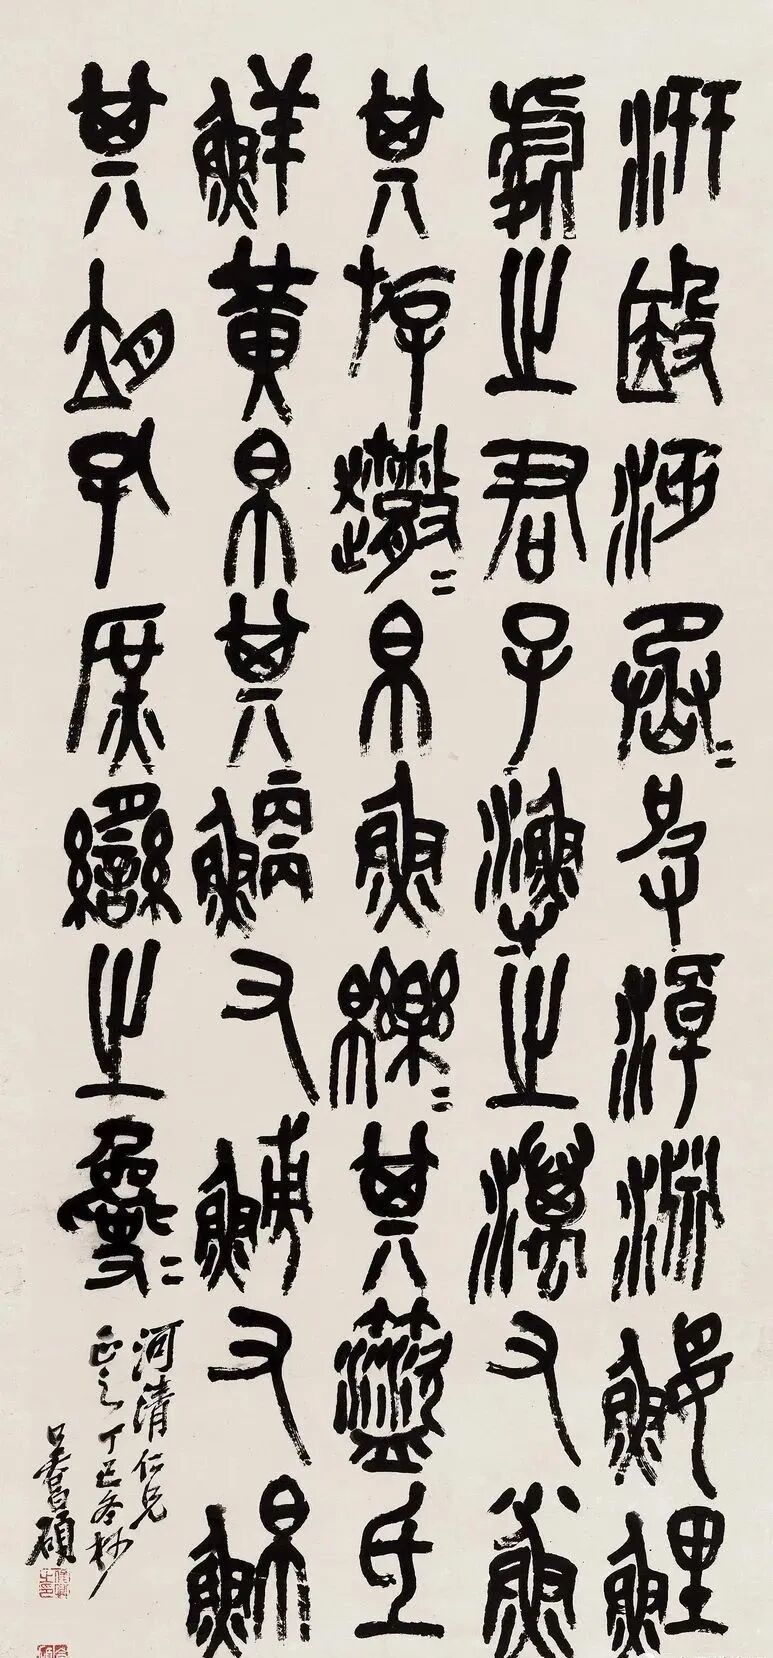 汧殹沔丞〻皮淖淵鰋鯉
處之君子漁之澫又小魚
其斿趣〻帛魚皪〻其盜氐
鮮黃帛其鯿又鱄又鮊
其孔庶臠之〻
河清仁兄
正之丁巳冬杪
吳昌碩